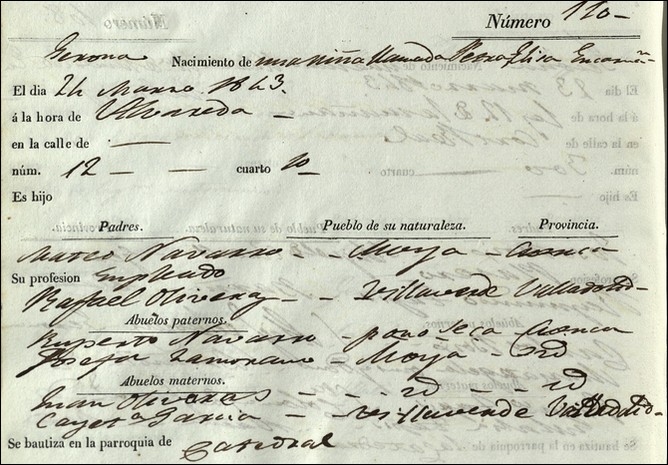 Número 110-
Gerona Nacimiento de una niña llamada Petra Elisa Encarn.n
El dia 24 Marzo 1843.
á la hora de
en la calle de —
núm. 12 — — cuarto 1o —
Es hijo
Padres. Pueblo de su naturaleza. Provincia.
Mateo Navarro - Moya - Cuenca
Su profesion Empleado
Rafael Olivera - - Villaverde Valladolid-
Abuelos paternos.
Ruperto Navarro - Cuenca
Josefa Zamorano - Moya - Id
Abuelos maternos.
Juan Oliveras - - - id - - id
Cayet.a Garcia - - Villaverde Valladolid-
Se bautiza en la parroquia de Catedral